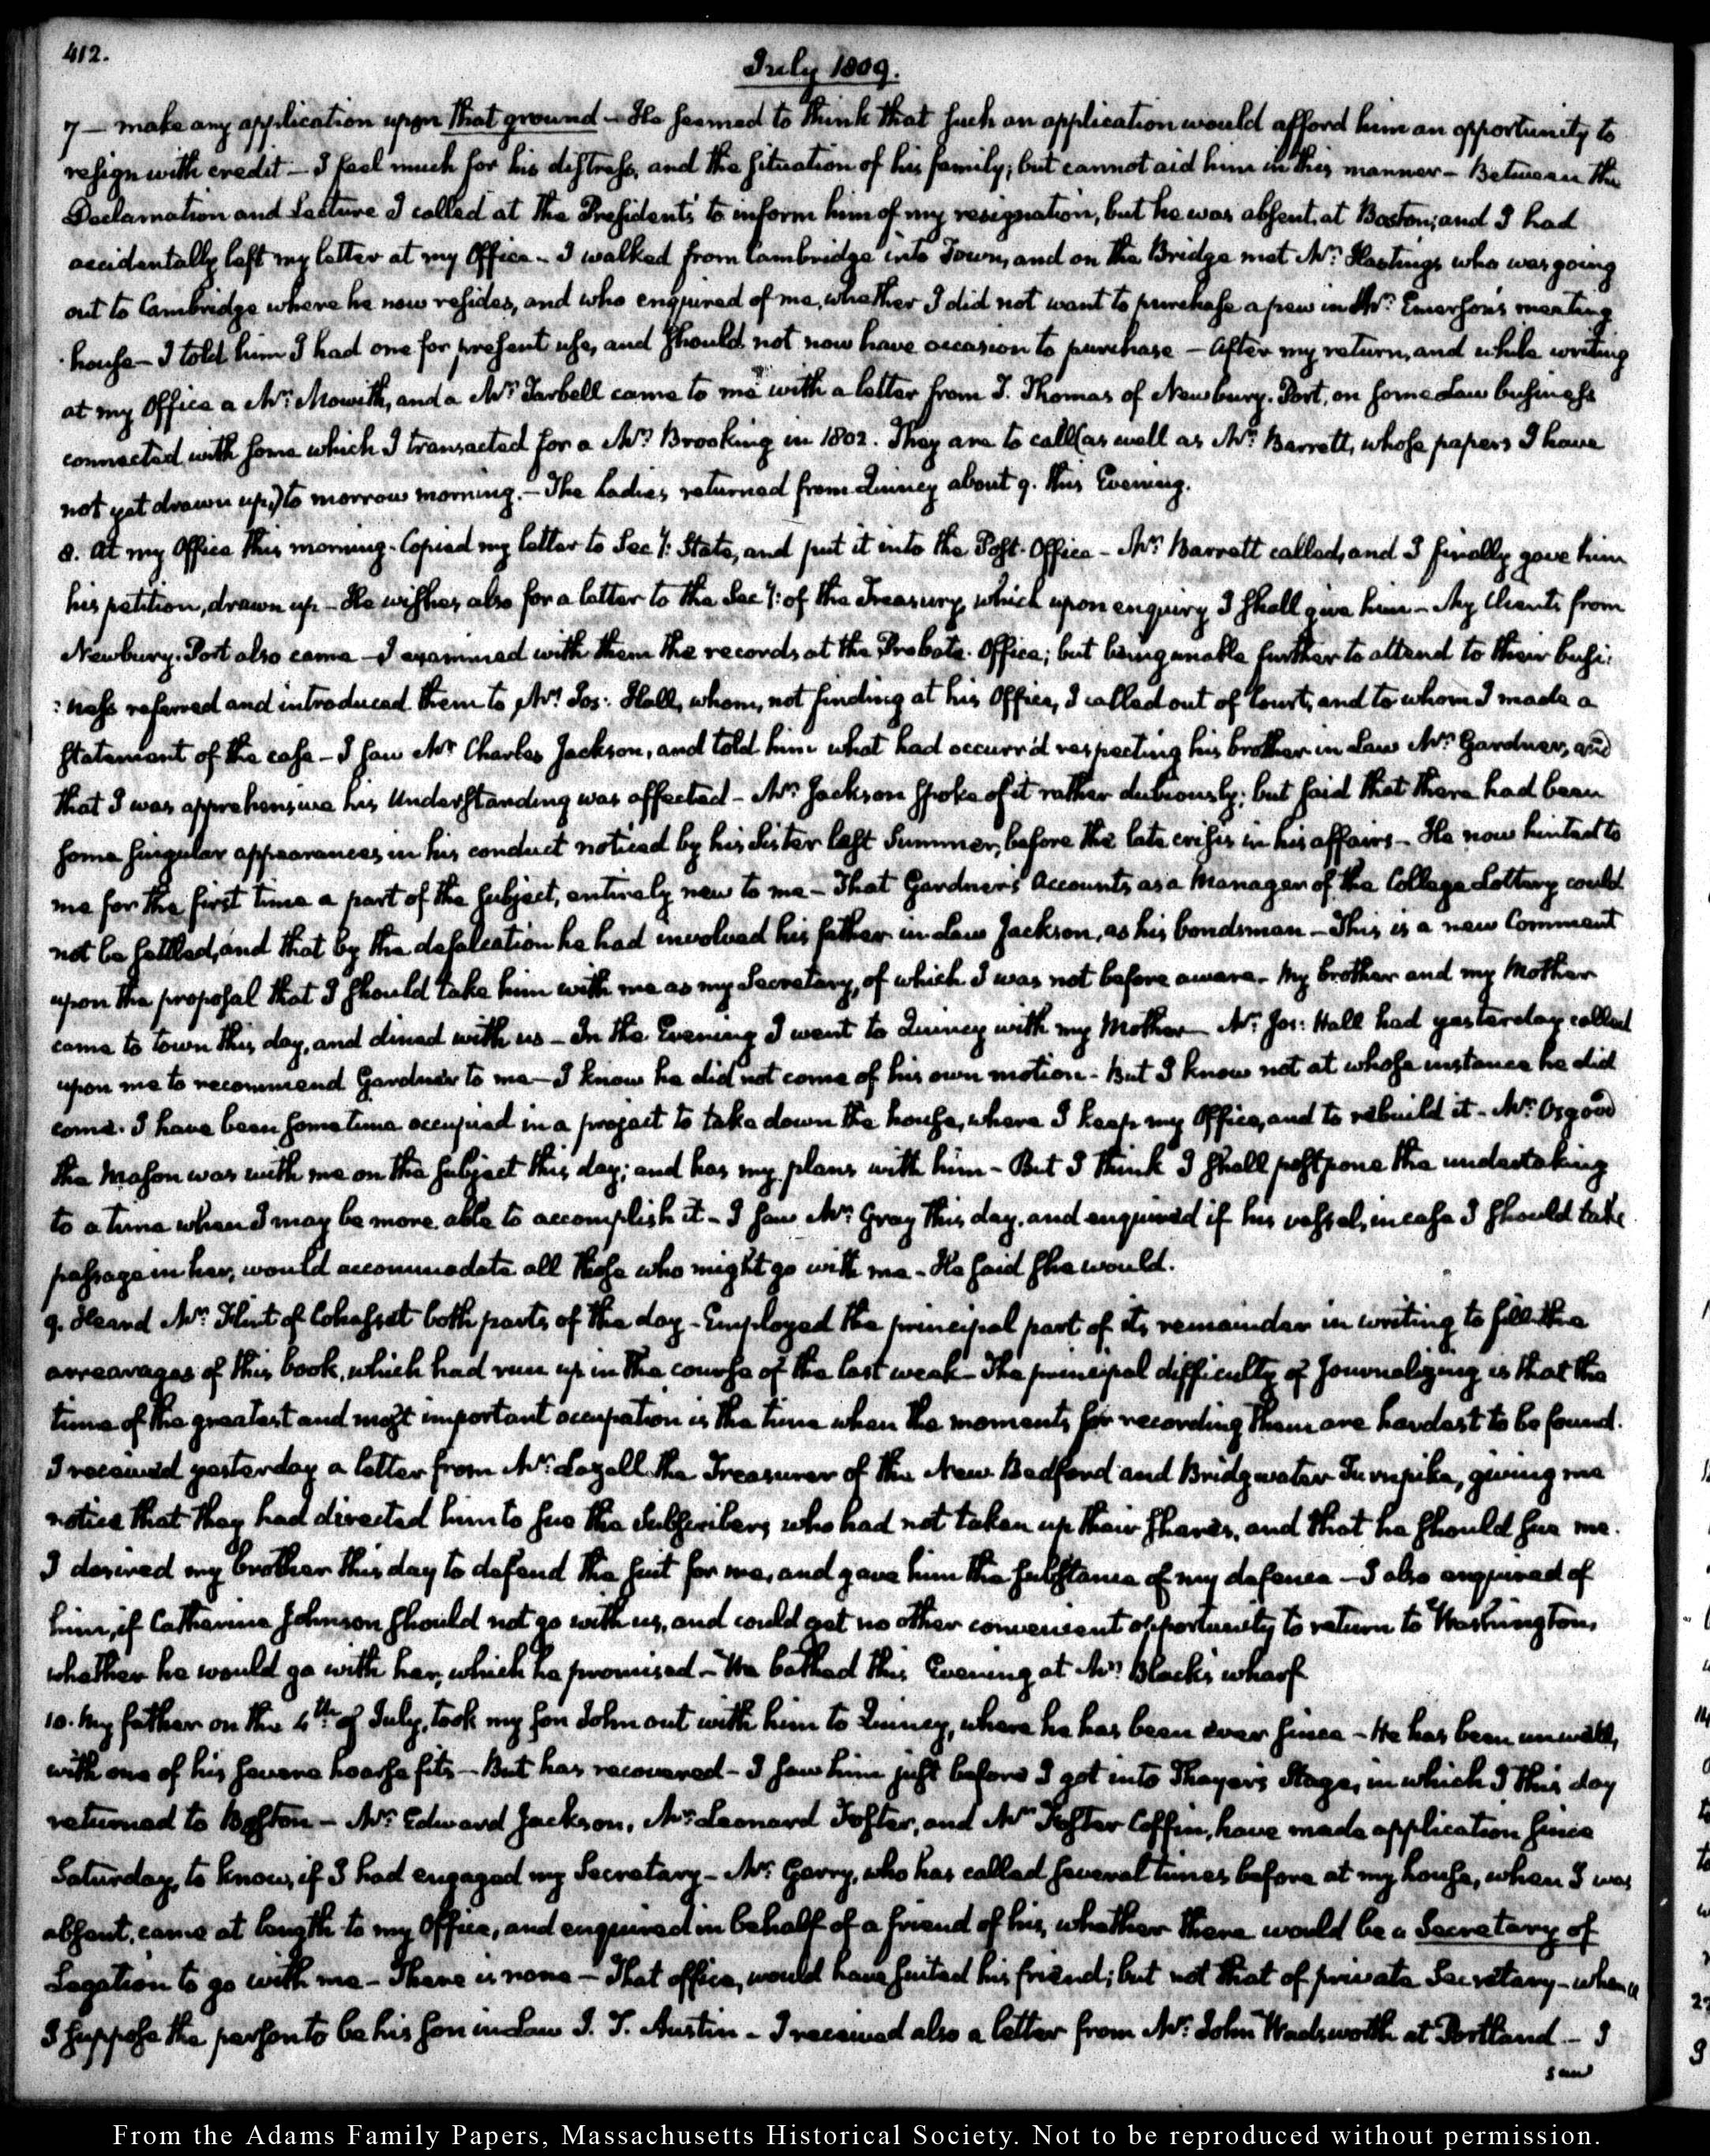 412.
July 1809.
7 — make any application upon that ground — He seemed to think that such an application would afford him an opportunity to
resign with credit — I feel much for his distress, and the situation of his family; but cannot aid him in this manner — Between the
Declamation and Lecture I called at the President's to inform him of my resignation, but he was absent, at Boston; and I had
accidentally left my letter at my Office — I walked from Cambridge into Town, and on the Bridge met Mr: Hastings who was going
out to Cambridge where he now resides, and who enquired of me, whether I did not want to purchase a pew in Mr: Emerson's meeting
house — I told him I had one for present use, and should not now have occasion to purchase — After my return, and while writing
at my Office a Mr: Mowith, and a Mr: Tarbell came to me with a letter from J. Thomas of Newbury-Port, on some Law business
connected with some which I transacted for a Mr: Brooking in 1802. They are to call (as well as Mr: Barrett, whose papers I have
not yet drawn up,) to morrow morning. — The Ladies returned from Quincy about 9. this Evening.
8. At my Office this morning. Copied my letter to Secy: State, and put it into the Post-Office — Mr: Barrett called, and I finally gave him
his petition, drawn up — He wishes also for a letter to the Secy: of the Treasury, which upon enquiry I shall give him — My Clients from
Newbury-Port also came — I examined with them the records at the Probate-Office; but being unable further to attend to their busi:
:ness referred and introduced them to Mr: Jos: Hall, whom, not finding at his Office, I called out of Court, and to whom I made a
statement of the case — I saw Mr: Charles Jackson, and told him what had occurr'd respecting his brother in Law Mr: Gardner, and
that I was apprehensive his Understanding was affected — Mr: Jackson spoke of it rather dubiously; but said that there had been
some singular appearances in his conduct noticed by his Sister last Summer, before the late crisis in his affairs — He now hinted to
me for the first time a part of the subject, entirely new to me — That Gardner's Accounts as a Manager of the College Lottery could
not be settled, and that by the defalcation he had involved his father in Law Jackson, as his bondsman — This is a new Comment
upon the proposal that I should take him with me as my Secretary, of which I was not before aware — My brother and my Mother
came to town this day, and dined with us — In the Evening I went to Quincy with my Mother — Mr: Jos: Hall had yesterday called
upon me to recommend Gardner to me — I know he did not come of his own motion — But I know not at whose instance he did
come. I have been sometime occupied in a project to take down the house, where I keep my Office, and to rebuild it — Mr: Osgood
the Mason was with me on the subject this day; and has my plans with him — But I think I shall postpone the undertaking
to a time when I may be more able to accomplish it — I saw Mr: Gray this day, and enquired if his vessel, in case I should take
passage in her, would accommodate all those who might go with me — He said she would.
9. Heard Mr: Flint of Cohasset both parts of the day — Employed the principal part of its remainder in writing to fill the
arrearages of this book, which had run up in the course of the last week — The principal difficulty of Journalizing is that the
time of the greatest and most important occupation is the time when the moments for recording them are hardest to be found.
I received yesterday a letter from Mr: Lazell the Treasurer of the New-Bedford and Bridgwater Turnpike, giving me
notice that they had directed him to sue the Subscribers who had not taken up their shares, and that he should sue me.
I desired my brother this day to defend the suit for me, and gave him the substance of my defence — I also enquired of
him, if Catherine Johnson should not go with us, and could get no other convenient opportunity to return to Washington,
whether he would go with her, which he promised — We bathed this Evening at Mr: Black's wharf.
10. My father on the 4th of July, took my son John out with him to Quincy, where he has been ever since — He has been unwell,
with one of his severe hoarse fits — But has recovered — I saw him just before I got into Thayer's Stage, in which I this day
returned to Boston — Mr: Edward Jackson, Mr: Leonard Foster, and Mr: Foster Coffin, have made application since
Saturday, to know, if I had engaged my Secretary — Mr: Gerry, who has called several times before at my house, when I was
absent, came at length to my Office, and enquired in behalf of a friend of his, whether there would be a Secretary of
Legation to go with me — There is none — That office, would have suited his friend; but not that of private Secretary — whence
I suppose the person to be his son in Law J. T. Austin — I received also a letter from Mr: John Wadsworth at Portland — I
saw
From the Adams Family Papers, Massachusetts Historical Society. Not to be reproduced without permission.